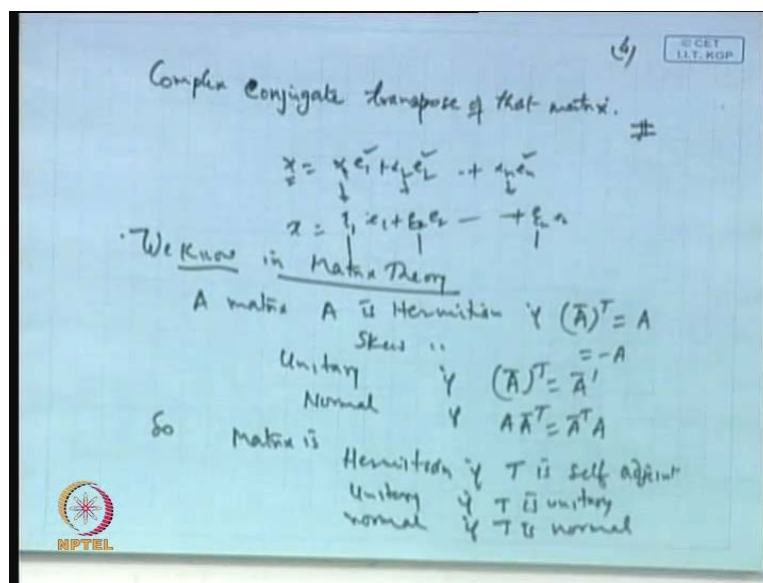 (4)
© CET
I.I.T. KGP
Complex Conjugate transpose of that matrix. #
x = α₁e₁ + α₂e₂ .. + αₙeₙ
x = ξ₁e₁ + ξ₂e₂ — + ξₙeₙ
We Know in Matrix Theory
A matrix A is Hermition if (Ā)ᵀ = A
Skew ,, = -A
Unitary if (Ā)ᵀ = A⁻¹
Normal if AĀᵀ = ĀᵀA
So Matrix is
Hermition if T is self adjoint
Unitary if T is unitary
normal if T is normal
NPTEL